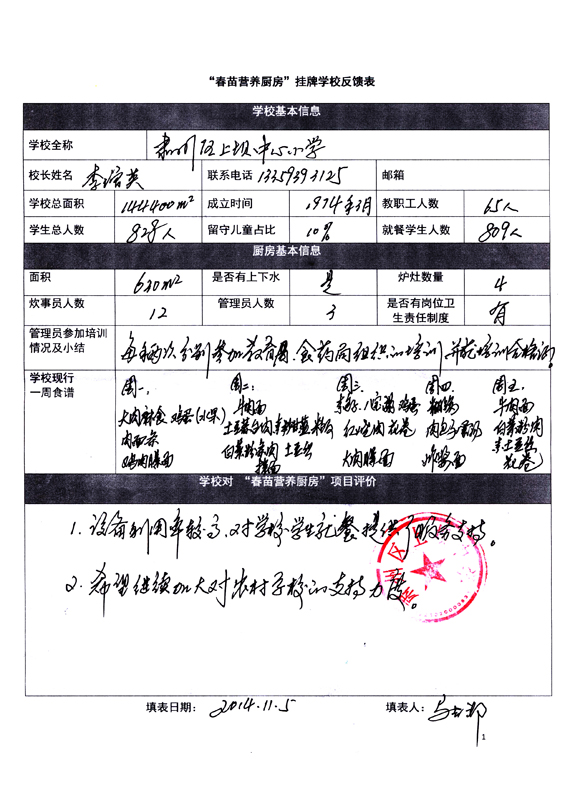 “春苗营养厨房”挂牌学校反馈表
学校基本信息
学校全称 肃州区上坝中心小学
校长姓名 李培英 联系电话 13359393125 邮箱
学校总面积 144400m² 成立时间 1974年3月 教职工人数 65人
学生总人数 828人 留守儿童占比 10% 就餐学生人数 809人
厨房基本信息
面积 630m² 是否有上下水 是 炉灶数量 4
炊事员人数 12 管理员人数 3 是否有岗位卫
生责任制度 有
管理员参加培训
情况及小结 每年两次分别参加教育局、食药局组织的培训,并获培训合格证。
学校现行
一周食谱
周一: 周二: 周三: 周四: 周五:
牛肉面 牛肉面
鸡蛋 红烧肉 花卷 白菜粉肉
肉面条 白菜粉条肉 土豆丝
大肉臊面 炸酱面 花卷
学校对 “春苗营养厨房”项目评价
1. 设备利用率较高,对学校学生就餐提供了服务支持。
2. 希望继续加大对农村学校的支持力度。
填表日期: 2014.11.5 填表人:
1